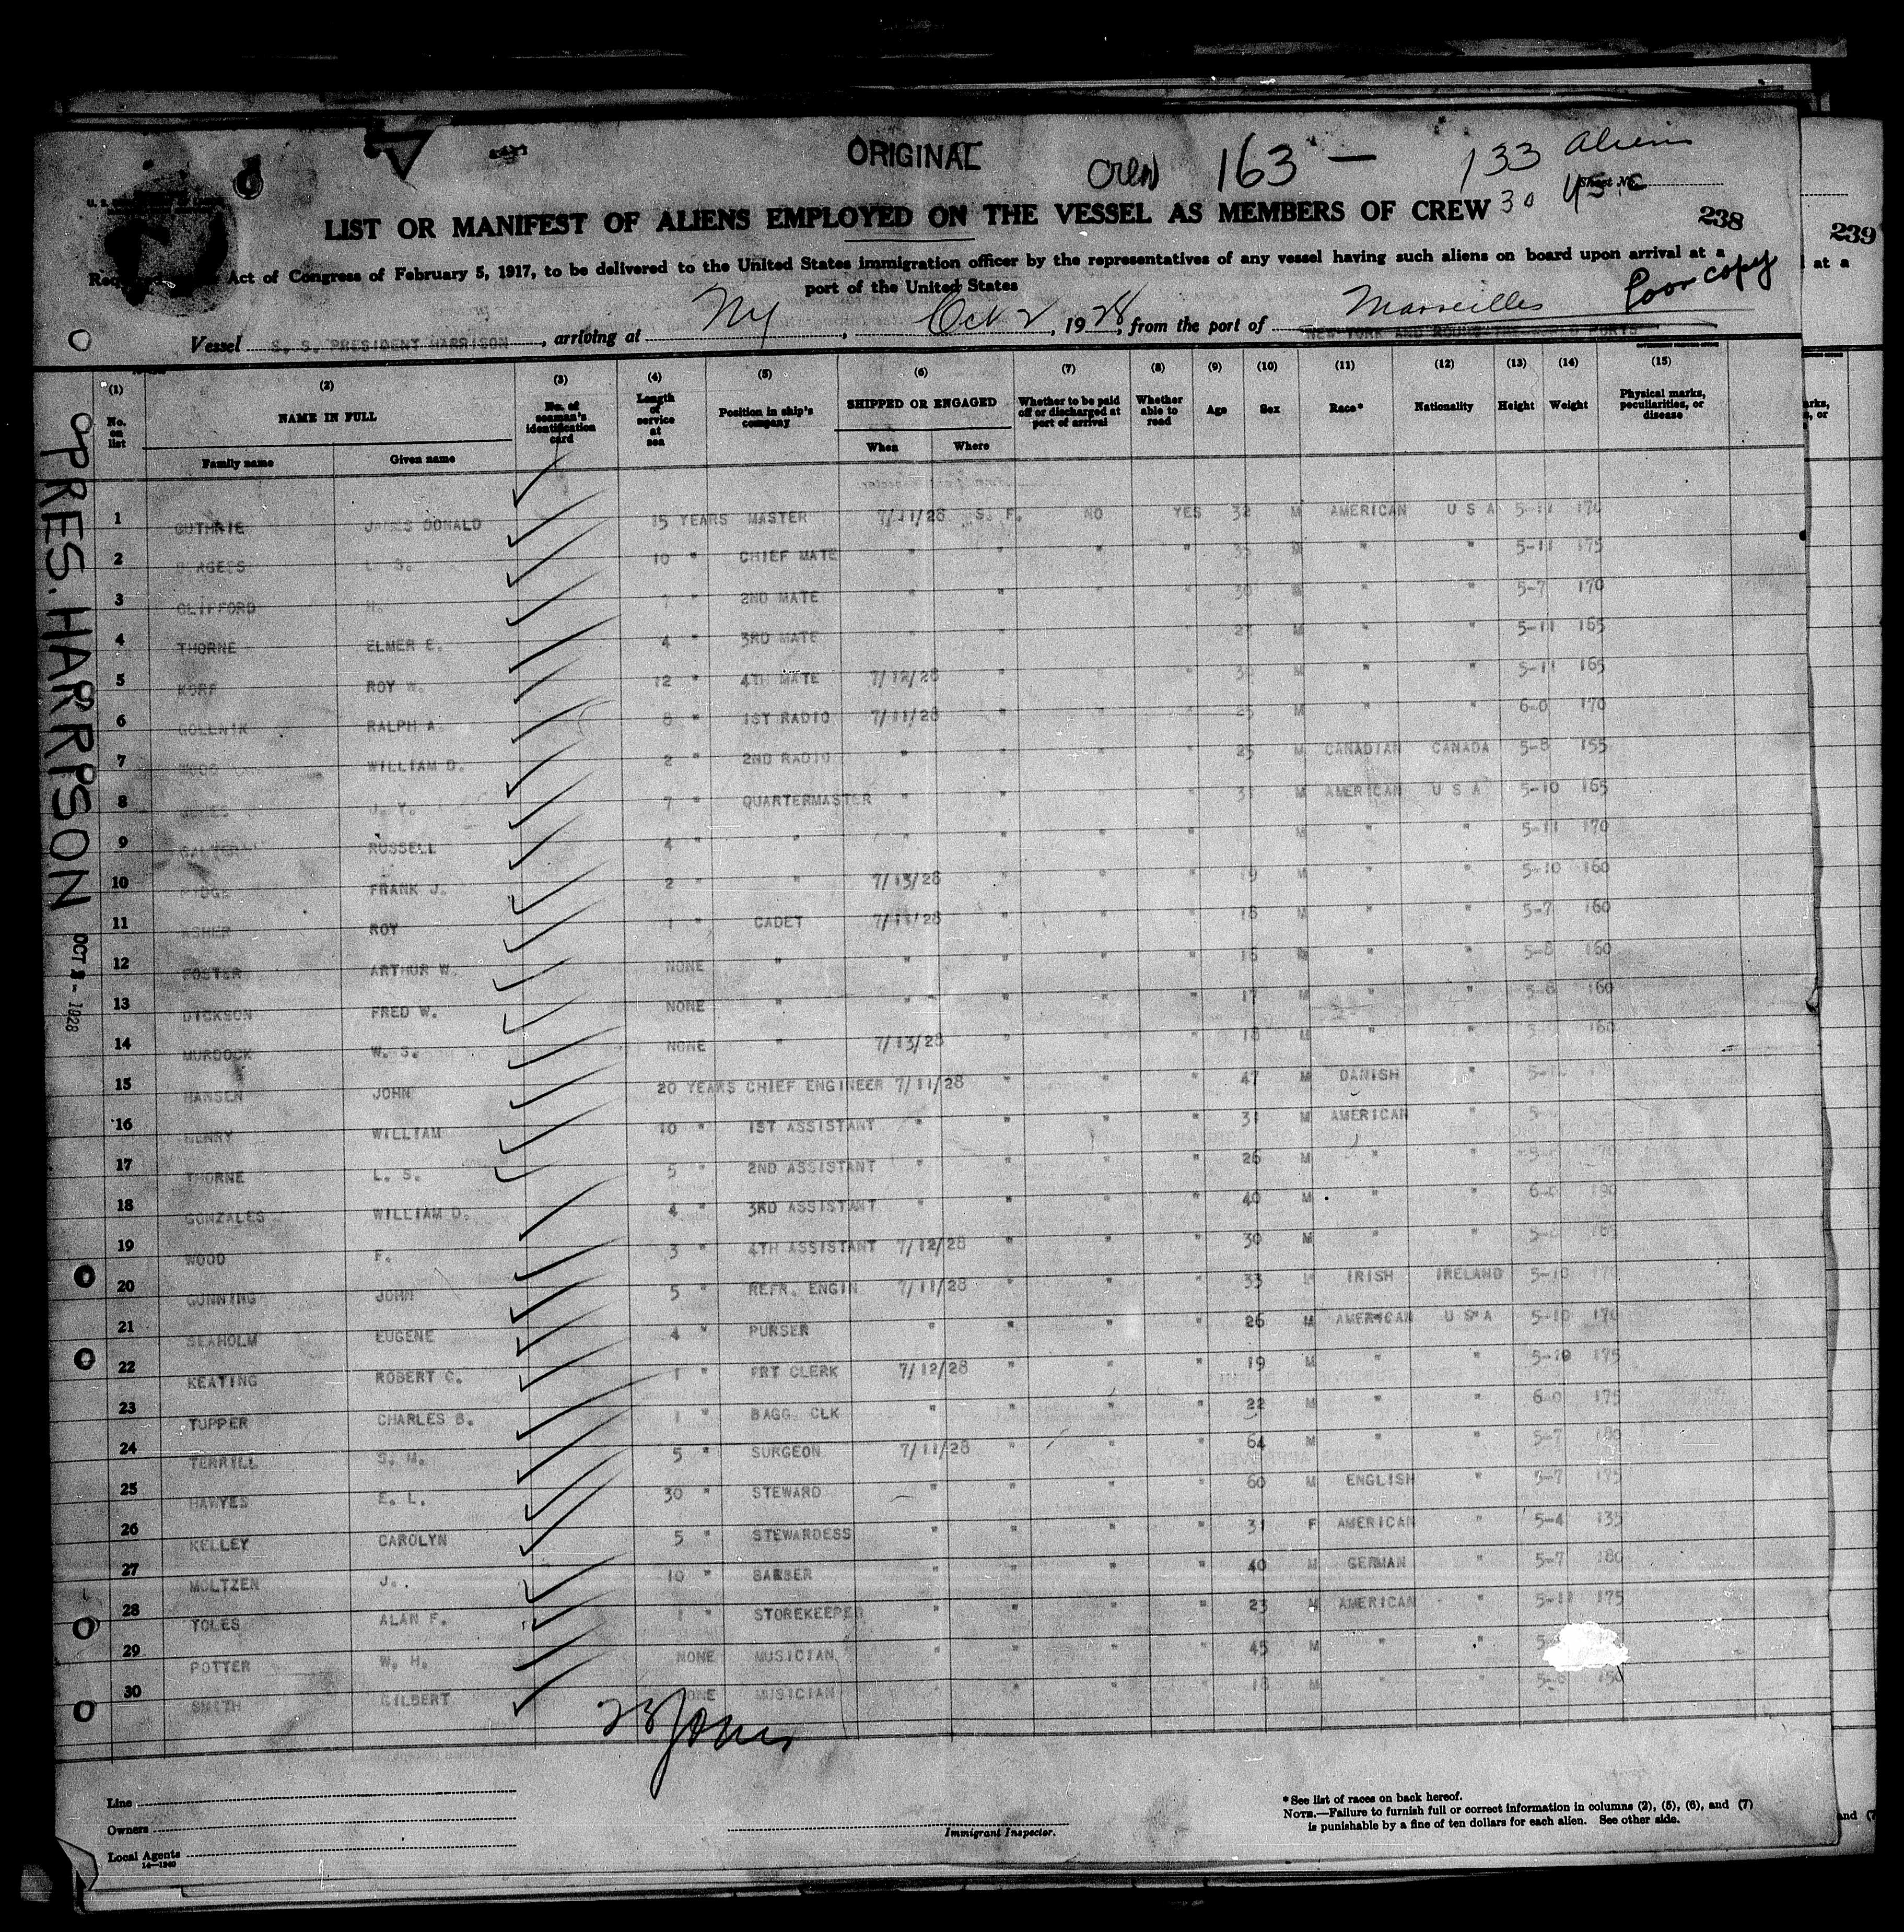 ORIGINAL
Crew 163 — 133 Aliens
30 USC
Sheet No.
LIST OR MANIFEST OF ALIENS EMPLOYED ON THE VESSEL AS MEMBERS OF CREW
238
239
Act of Congress of February 5, 1917, to be delivered to the United States immigration officer by the representatives of any vessel having such aliens on board upon arrival at a
at a
port of the United States
Poor copy
Vessel S. S. PRESIDENT HARRISON, arriving at NY, Oct 2, 1928, from the port of Marseilles
NEW YORK AND ROUND THE WORLD PORTS
PRES. HARRISON OCT 2 - 1928
(1) (2) (3) (4) (5) (6) (7) (8) (9) (10) (11) (12) (13) (14) (15)
No. on list NAME IN FULL No. of seaman's identification card Length of service at sea Position in ship's company SHIPPED OR ENGAGED Whether to be paid off or discharged at port of arrival Whether able to read Age Sex Race* Nationality Height Weight Physical marks, peculiarities, or disease
Family name Given name When Where
1 GUTHRIE JAMES DONALD 15 YEARS MASTER 7/11/28 S. F. NO YES 32 M AMERICAN U S A 5-11 170
2 L. S. 10 " CHIEF MATE " " " " M " " 5-11 175
3 CLIFFORD H. " 2ND MATE " " " " M " " 5-7 170
4 THORNE ELMER E. 4 " 3RD MATE " " " " M " " 5-11 165
5 KORF ROY W. 12 " 4TH MATE 7/12/28 " " " M " " 5-11 165
6 GOLLNIK RALPH A. 8 " 1ST RADIO 7/11/28 " " " 25 M " " 6-0 170
7 WILLIAM D. 2 " 2ND RADIO " " " " 25 M CANADIAN CANADA 5-8 155
8 J. Y. 7 " QUARTERMASTER " " " " M AMERICAN U S A 5-10 165
9 RUSSELL 4 " " " " " " M " " 5-11 170
10 FRANK J. 2 " " 7/13/28 " " " 19 M " " 5-10 160
11 ASHER ROY 1 " CADET 7/11/28 " " " 18 M " " 5-7 160
12 FOSTER ARTHUR W. NONE " " " " " 16 M " " 5-8 160
13 DICKSON FRED W. NONE " " " " " 17 M " " 5-8 160
14 MURDOCK W. S. NONE " 7/13/28 " " " 18 M " " 160
15 HANSEN JOHN 20 YEARS CHIEF ENGINEER 7/11/28 " " " 47 M DANISH "
16 HENRY WILLIAM 10 " 1ST ASSISTANT " " " " 31 M AMERICAN "
17 THORNE L. S. 5 " 2ND ASSISTANT " " " " 26 M " "
18 GONZALES WILLIAM D. 4 " 3RD ASSISTANT " " " " 40 M " " 6-0 190
19 WOOD F. 3 " 4TH ASSISTANT 7/12/28 " " " 30 M " " 165
20 GUNNING JOHN 5 " REFR. ENGIN 7/11/28 " " " 33 M IRISH IRELAND 5-10 170
21 SEAHOLM EUGENE 4 " PURSER " " " " 26 M AMERICAN U S A 5-10 170
22 KEATING ROBERT C. 1 " FRT CLERK 7/12/28 " " " 19 M " " 5-10 175
23 TUPPER CHARLES B. 1 " BAGG. CLK " " " " 22 M " " 6-0 175
24 TERRILL S. M. 5 " SURGEON 7/11/28 " " " 64 M " " 5-7 180
25 HAWYES E. L. 30 " STEWARD " " " " 60 M ENGLISH " 5-7 175
26 KELLEY CAROLYN 5 " STEWARDESS " " " " 31 F AMERICAN " 5-4 135
27 MOLTZEN J. 10 " BARBER " " " " 40 M GERMAN " 5-7 180
28 TOLES ALAN F. 1 " STOREKEEPER " " " " 23 M AMERICAN " 5-11 175
29 POTTER W. H. NONE MUSICIAN " " " " 45 M " "
30 SMITH GILBERT NONE MUSICIAN " " " 18 M " " 5-8 150
Line
Owners
Local Agents
14—1240
Immigrant Inspector.
*See list of races on back hereof.
NOTE.—Failure to furnish full or correct information in columns (2), (5), (6), and (7)
is punishable by a fine of ten dollars for each alien. See other side.